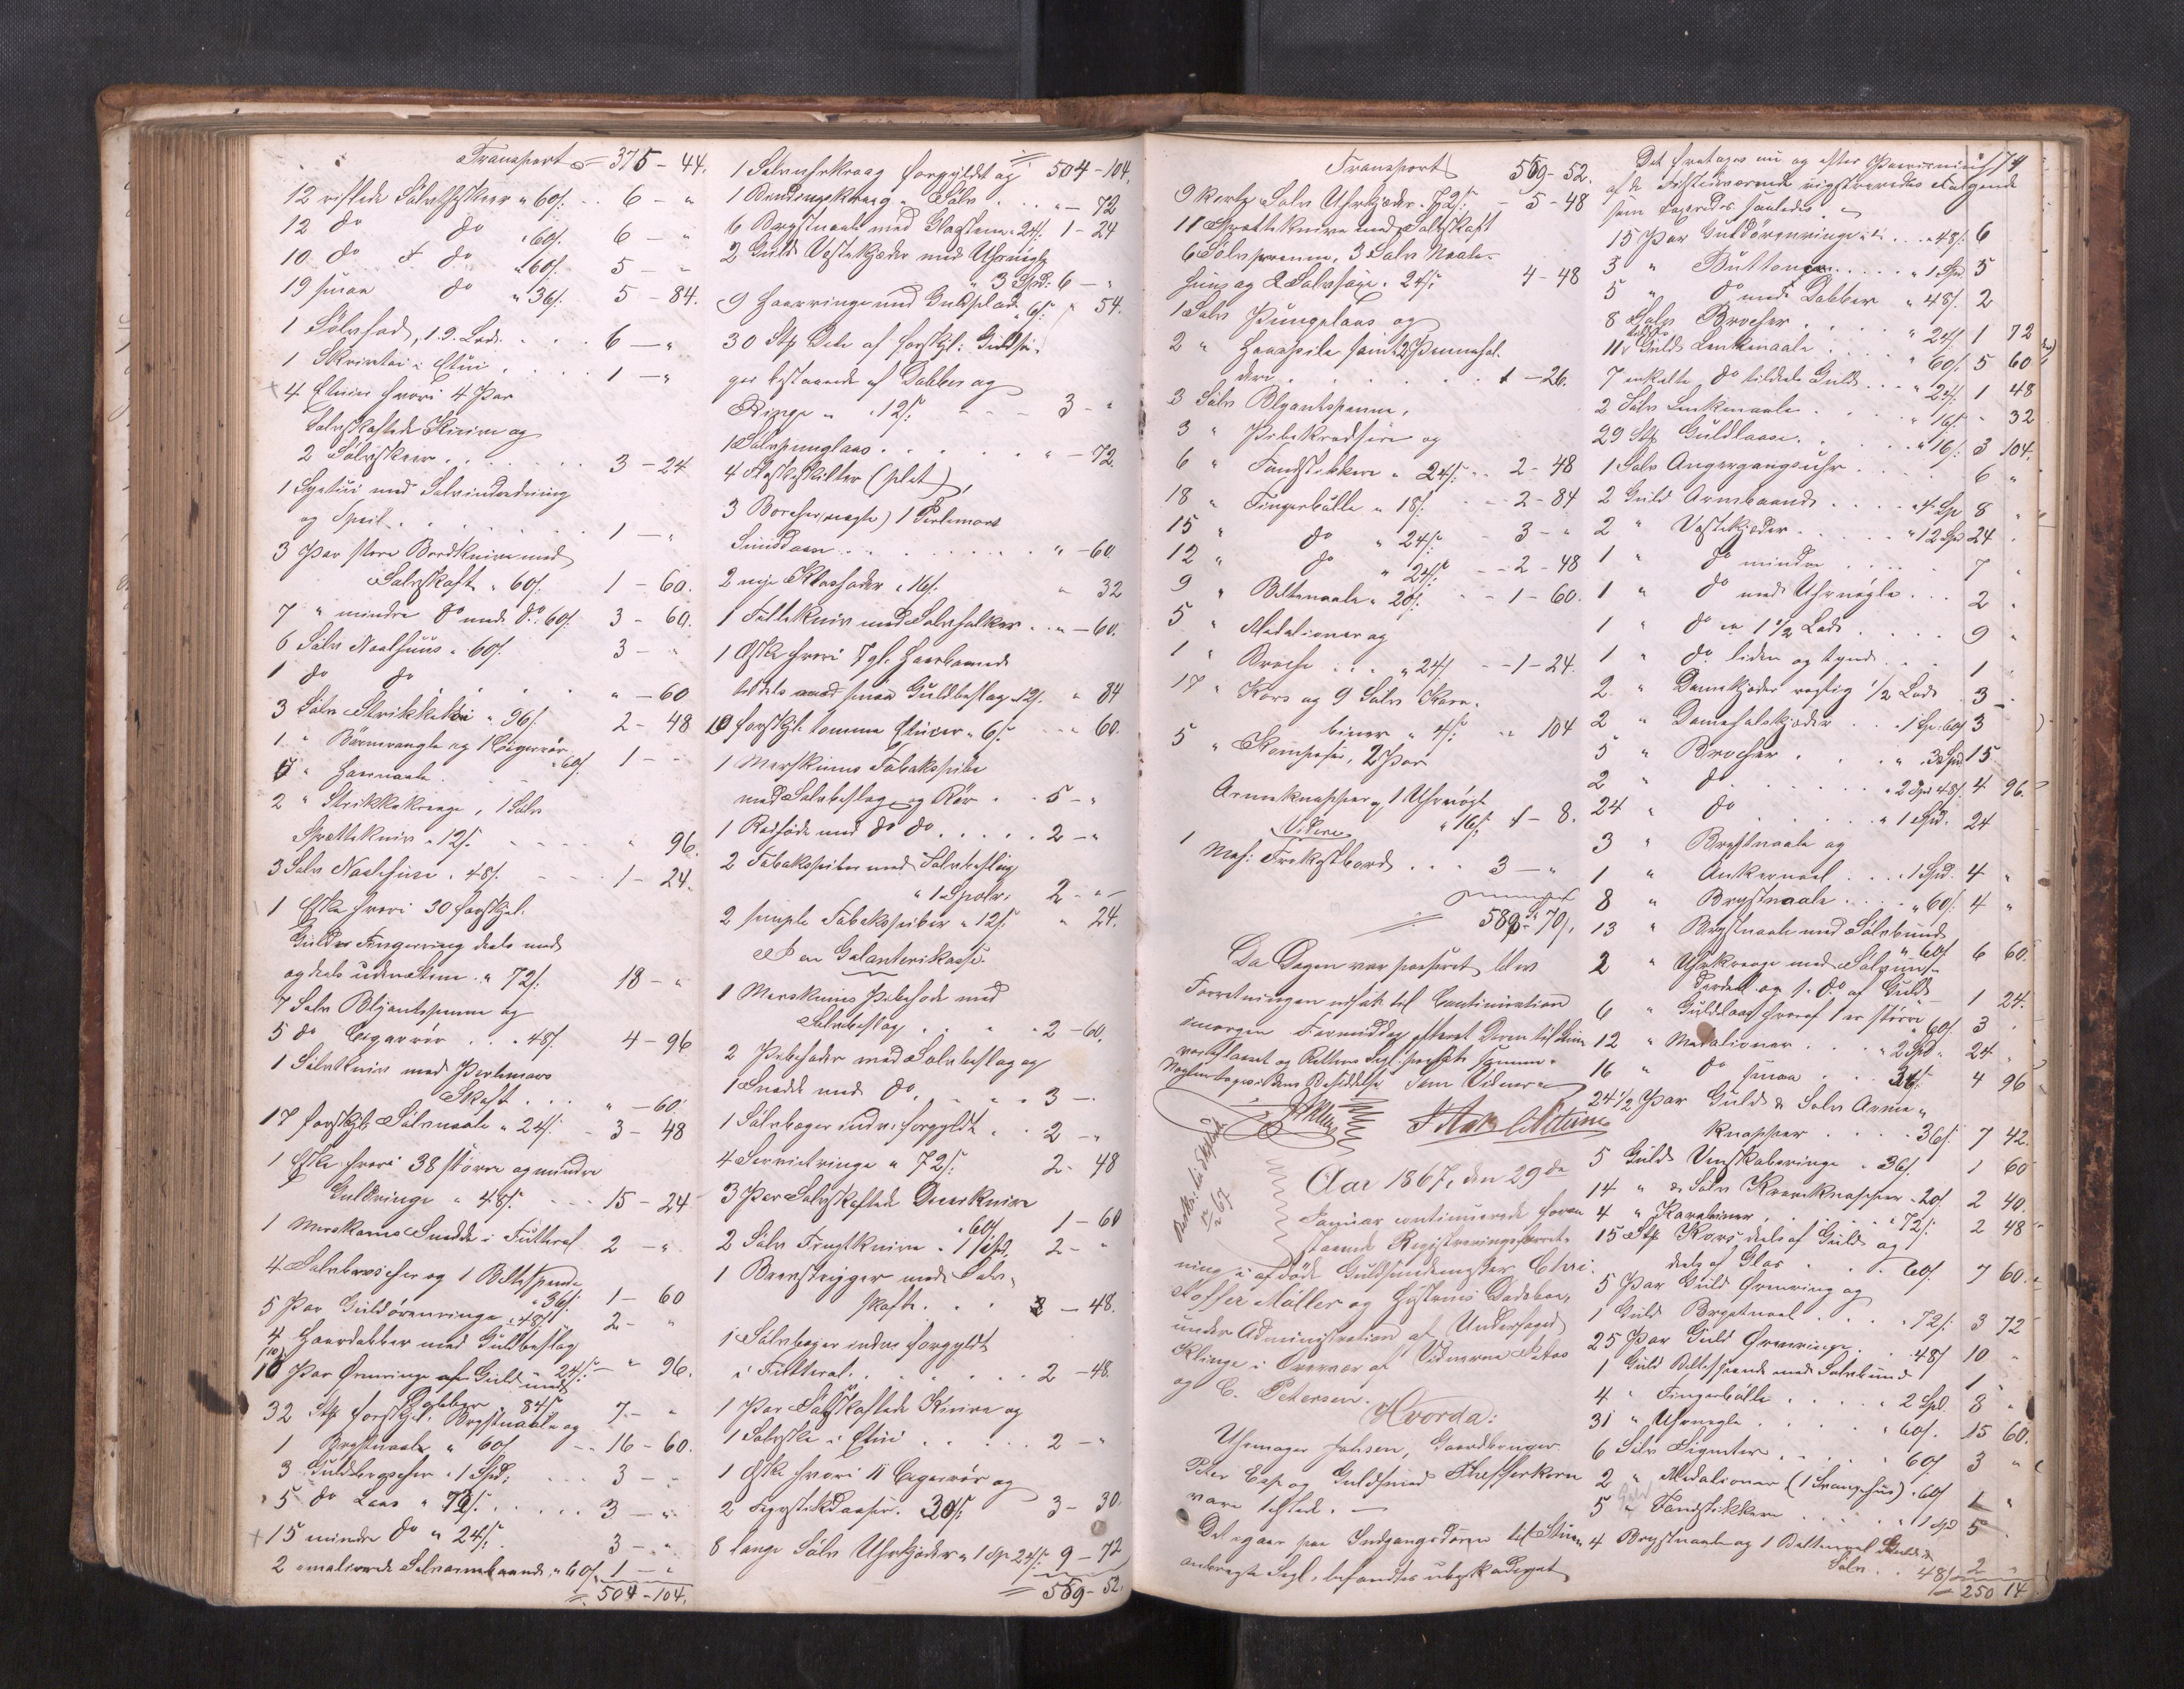 Transport = 375 - 44.
12 riflede Sølvtheskeer " 60/: 6 - "
12 do do " 60/. 6 - "
10 do do " 60/. 5 - "
19 smaa do " 36/: 5 - 84.
1 Sølvfad, 19. Lod. 6 - "
1 Skrivetøi i Etui 1 - "
4 Etuier hvori 4 Par
Sølvskaftede Knive og
2 Sølvskeer 3 - 24
1 Syetui med Sølvindretning
og Speil 1 - "
3 Par store Bordknive med
Sølvskaft " 60/. 1 - 60.
7 " mindre do med do: 60/. 3 - 60.
6 Sølv Naalhuus " 60/. 3 - "
1 do do " - 60
3 Sølv Strikketøi " 96/. 2 - 48
1 " Børnerangle og 1 Cigarrør " 60/. 1 - "
" Haarnaale
2 " Strikkekroge, 1 Sølv
Sprættekniv " 12/. " 96.
3 Sølv Naalehuse " 48/. 1 - 24.
1 Æske hvori 30 forskjel.
Guld Fingerring deels med
og deels uden Steene " 72/. 18 - "
7 Sølv Blyantspenne og
5 do Cigarrør " 48/. 4 - 96
1 Sølvkniv med Perlemors
Skaft " - 60.
17 forskjel. Sølvnaale " 24/. 3 - 48
1 Æske hvori 38 større og mindre
Guldringe " 48/. 15 - 24
1 Merskums Snadde i Futteral 2 - "
4 Sølvbrocher og 1 Beltespende " 36/. 1 - 60
5 Par Guldørenringe " 48/. 2 - "
4 Haardobber med Guldbeslag " 24/. " 96.
10 Par Ørenringe af Guld med
Dobber " 84/. 7 - "
32 Stk forskjel. Brystnaale og
1 Brystnaale " 60/. 16 - 60.
3 Guldbrocher " 1 Spd: 3 - "
5 do Laas " 72/. 3 - "
15 mindre do " 24/. 3 - "
2 emalierede Sølvarmbaand " 60/. 1 - "
= 504 - 104.
= 504 - 104.
1 Sølvuhrkrog forgyldt og
1 do " Sølv " - 72
6 Brystnaale med Glasstene " 24/. 1 - 24
2 Guld Vestekjæder med Uhrnøgle
" 3 Spd: 6 - "
9 Haarringe med Guldplade " 6/. " 54.
30 Stk Dele af forskjl. Guldsa-
ger bestaaende af Dobber og
Ringe " 12/. 3 - "
1 Sølvpunglaas " - 72.
4 Flaskeskilter (plet),
3 Borcher (uægte) 1 Perlemors
Snusdaase " - 60.
2 nye " 16/. " 32
1 Foldekniv med Sølvholker " - 60.
1 Æske hvori 7 gl. Haarbaand
tildels med smaa Guldbeslag " 12/. " 84
10 forskjl. tomme Etuier " 6/. " 60.
1 Merskums Tobakspibe
med Sølvbeslag og Rør 5 - "
1 Rodhode med do do. 2 - "
2 Tobakspiber med Sølvbeslag
" 1 Spdlr. 2 - "
2 simple Tobakspiber " 12/. " 24.
I en Galanterikasse.
1 Merskums Pibehode med
Sølvbeslag 2 - 60.
2 Pibehoder med Sølvbeslag og
1 Snadde med do. 3 - "
1 Sølvbæger indv. forgyldt 2 - "
4 Servietringe " 72/. 2 - 48
3 Par Sølvskaftede Dessertknive " 60/. 1 - 60
2 Sølv Frugtknive " 1 Spd. 2 - "
1 Brevstryger med Sølv-
skaft - 48.
1 Sølvbæger indv. forgyldt
i Futteral 2 - 48.
1 Par Sølvskaftede Knive og
1 Sølvske i Etui 2 - "
1 Æske hvori 11 Cigarrør og
2 Fyrstikdaaser. 30/. 3 - 30.
8 lange Sølv Uhrkjæder " 1 Sp. 24/. 9 - 72
= 569 - 52.
Transport 569 - 52.
9 korte Sølv Uhrkjæder " 72/. 5 - 48
11 Sprætteknive med Sølvskaft
6 Sølvpenne, 3 Sølv Naale-
huus og 2 Sølvsaxe " 24/. 4 - 48
1 Sølv Pungelaas og
2 " Haarpile samt 2 Pennehol-
dere 1 - 26.
3 Sølv Blyantspenne,
3 " Pibekradsere og
6 " Tandstikkere " 24/. 2 - 48
18 " Fingerbølle " 18/. 2 - 84
15 " do " 24/. 3 - "
12 " do " 24/. 2 - 48
9 " Beltenaale " 20/. 1 - 60.
5 " Medalioner og
1 " Broche " 24/. 1 - 24.
17 " Kors og 9 Sølv Kara-
biner " 4/. " 104
5 " , 2 Par
Armeknapper og 1 Uhrnøgle " 16/. 1 - 8.
Videre
1 Mah: Frokostbord 3 - "
= 589 - 70/.
Da Dagen var passeret blev
Forretningen udsat til Continuation
imorgen Formiddag efterat Døren til
var tillaaset og Rettens Segl paasat
Nøglen toges i dens Besiddelse. Som Vidner
Aar 1867, den 29de
Januar continuerede foran-
staaende Registreringsforret-
ning i afdøde Guldsmedmester Chri-
stoffer Møller og Hustrues Dødsboe,
under Administration af Undersøged
Klinge i Overvær af Vidnerne
og C. Petersen.
Hvorda:
Uhrmager Johsen, Gaardbruger
Peter Esp og Guldsmed
vare tilsted. -
Det igaar paa Indgangsdøren til Stuen
anbragte Segl, befandtes ubeskadiget
Det foretoges nu og efter Paaviisning 174
af de Tilstedeværende registreredes Følgende
som taxeredes saaledes.
15 Par Guldørenringe " 48/. 6
5 " Buttoner " 1 Spd. 5
5 " do med Dobber " 48/. 2
8 Sølv Brocher " 24/. 1 72
11 Guld Lenkenaale " 60/. 5 60
7 enkelte do tildels Guld " 24/. 1 48
2 Sølv Lenkenaale " 16/. " 32
29 Stk Guldlaase. " 16/. 3 104.
1 Sølv Ankergangsuhr 6 "
2 Guld Armbaand " 4 Sp 8 "
2 " Vestekjæder " 12 Spd 24 "
1 " do mindre 7 "
1 " do med Uhrnøgle 2 "
1 " do ca 1 1/2 Lod 9 "
1 " do liden og tynd 1 "
2 " Damekjæder vægtig 1/2 Lod 3 "
2 " Damehalskjæder " 1 Sp. 60/. 3
5 " Brocher " 3 Spd 15.
2 " do " 2 Spd 48/. 4 96.
24 " do " 1 Spd. 24
3 " Brystnaale og
1 " Ankernaal " 1 Spd. 4 "
8 " Brystnaale " 60/. 4 "
13 " Brystnaale med Sølvbund " 60/. 6 60.
2 " Uhrkroge med Sølvun-
derdel og 1 do af Guld 1 24.
6 " Guldlaas hvoraf 1 er større " 60/. 3 "
12 " Medalioner " 2 Spd. 24 "
16 " do smaa 36/. 4 96
24 1/2 Par Guld & Sølv Arme-
knapper " 36/. 7 42.
5 Guld Venskabsringe " 36/. 1 60
14 " & Sølv Kraveknapper " 20/. 2 40.
4 " Karabiner " 72/. 2 48
15 Stk Kors deels af Guld og
deels af Glas " 60/. 7 60.
5 Par Guld Ørenring og
1 Guld Brystnaal " 72/. 3 72
25 Par Guld Ørenringe " 48/. 10 "
1 Guld Beltespende med Sølvbund 1 "
4 " Fingerbølle " 2 Spd. 8 "
31 " Uhrnøgle " 60/. 15 60.
6 Sølv Signeter " 60/. 3 "
2 " Medalioner (1 ) " 60/. 1 "
5 Guld Tandstikkere " 1 Spd 5 "
4 Brystnaale og 1 Beltenaal Guld &
Sølv " 48/. 2 "
250 14